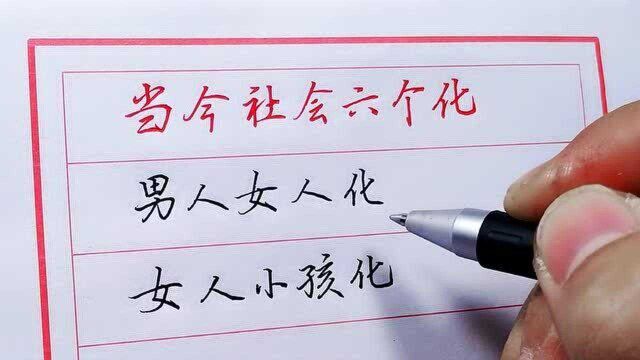 当今社会六个化
男人女人化
女人小孩化